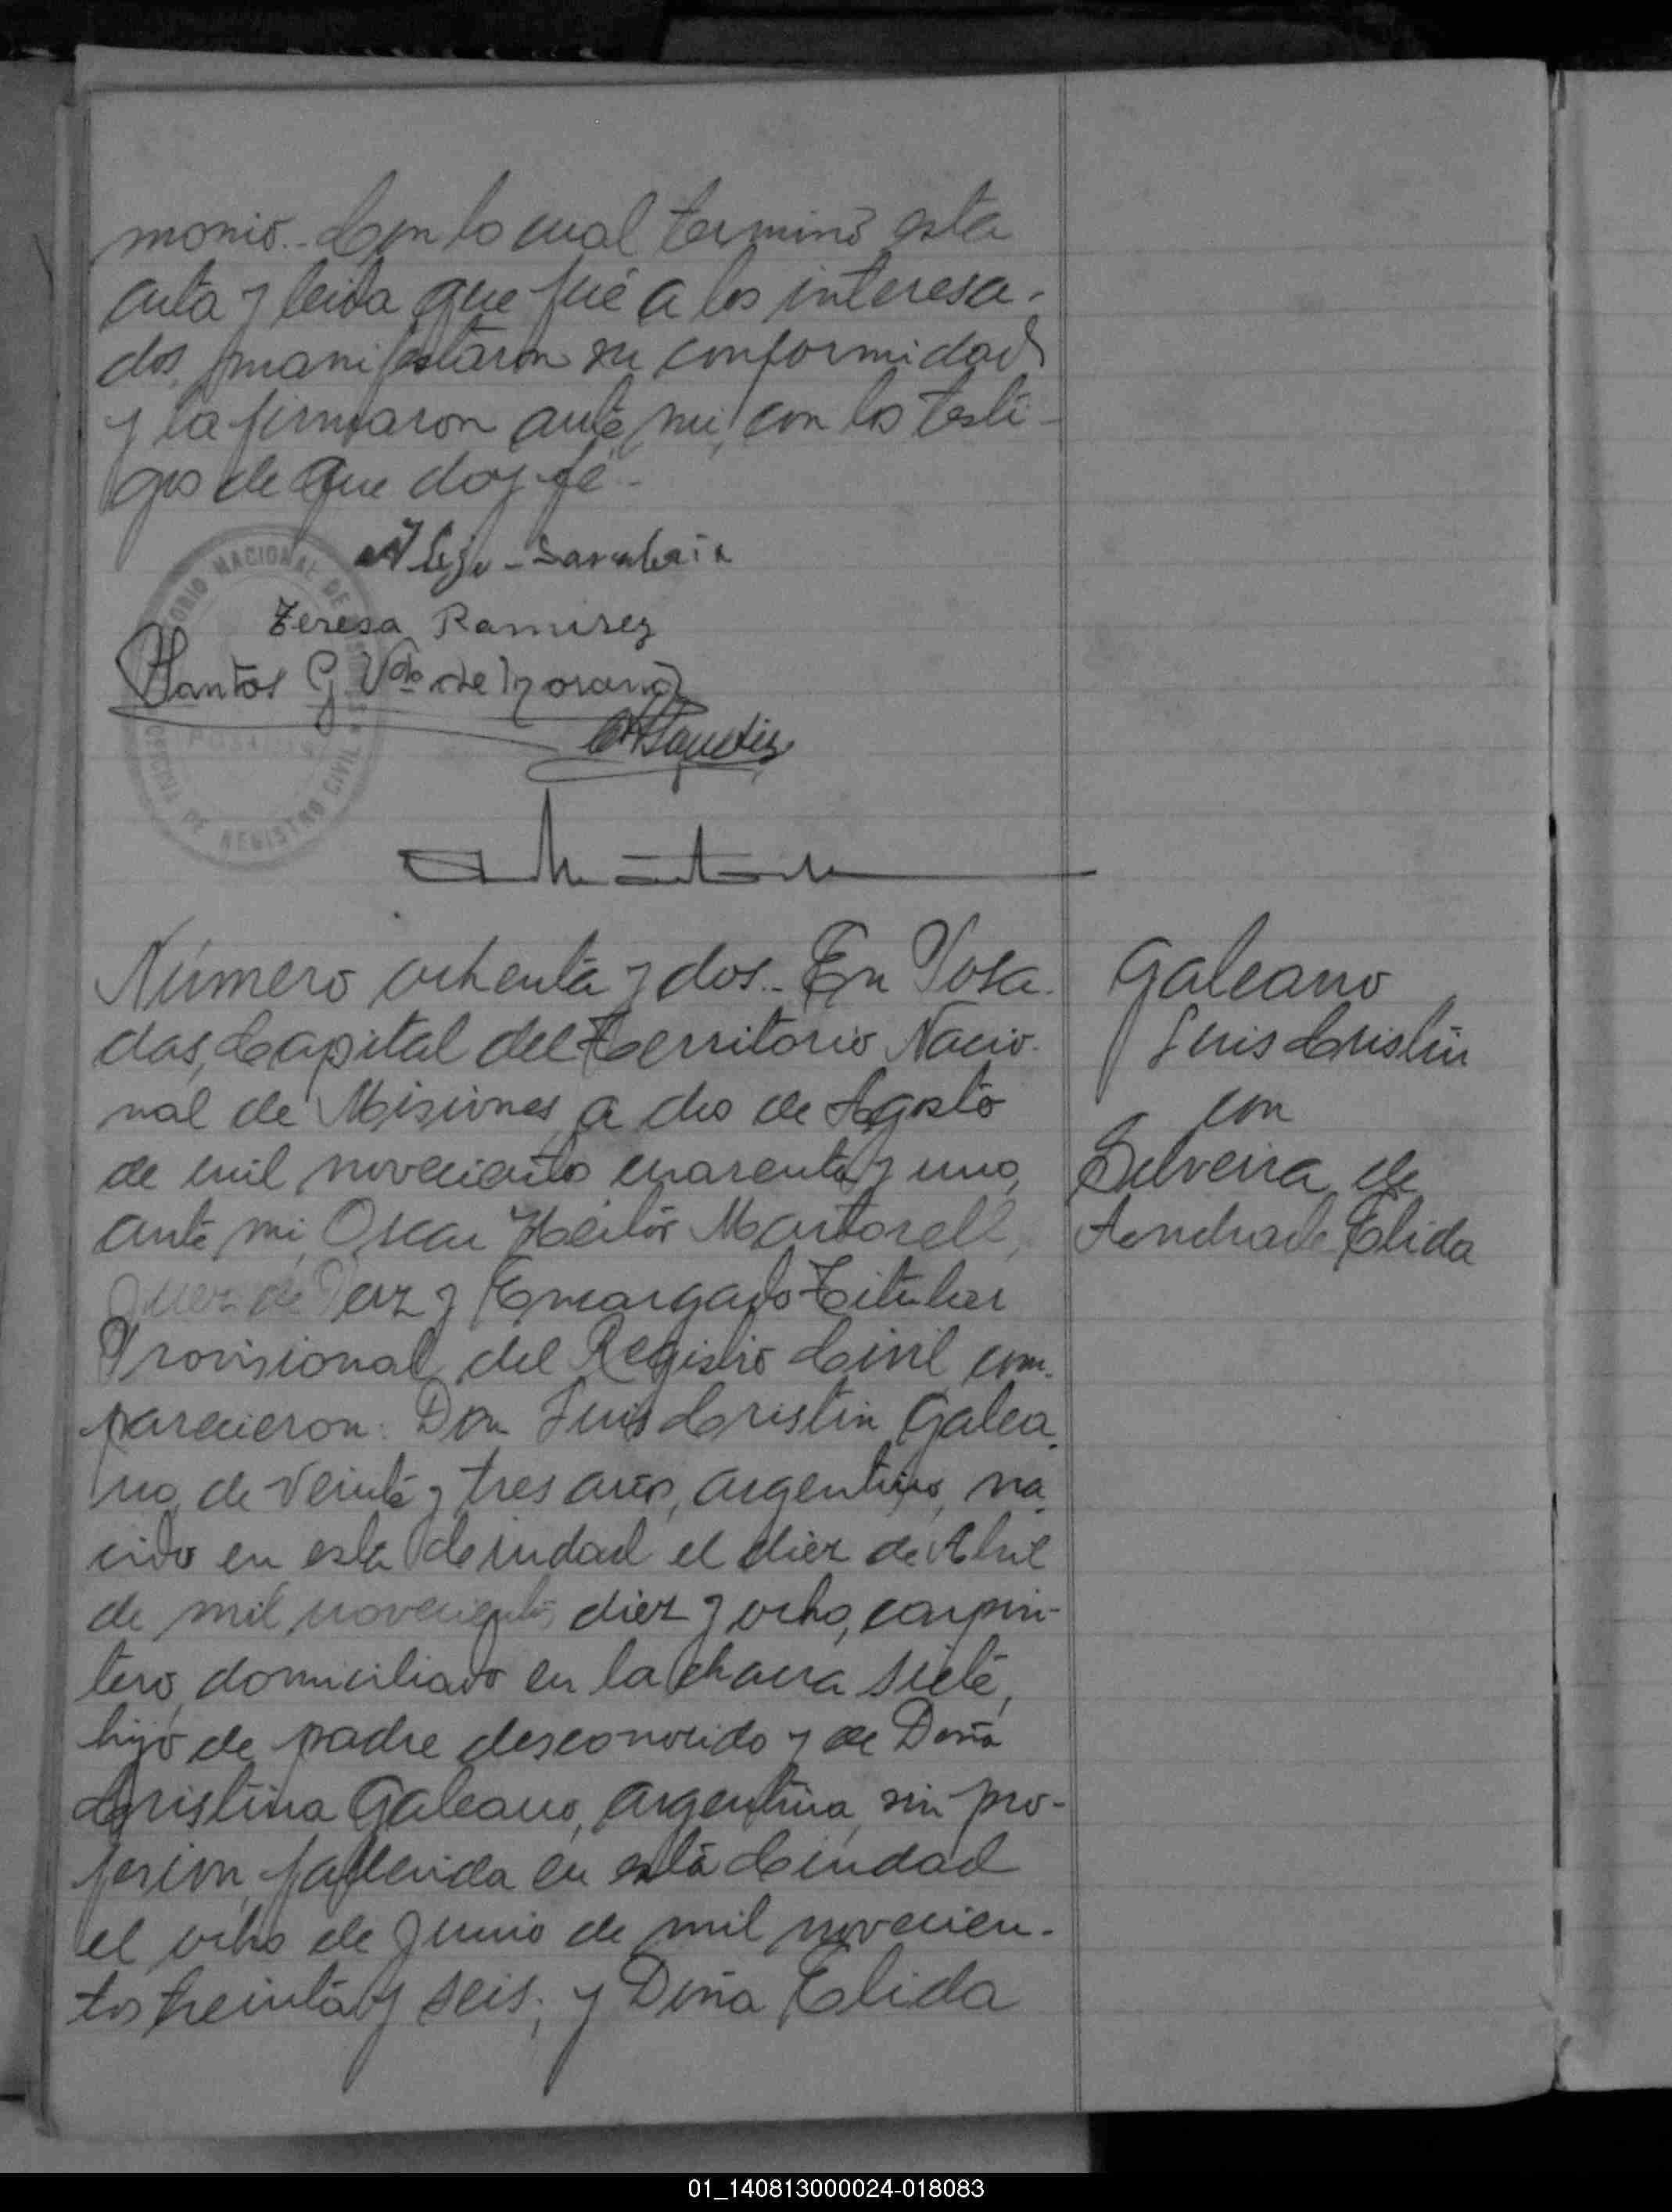 monio.- Con lo cual terminó esta
acta y leida que fué a los interesa-
dos, manifestaron su conformidad
y la firmaron ante mi, con los testi-
gos de que doy fé.-
Teresa Ramirez
Santos G Vda de
NACIONAL DE
OFICINA DE REGISTRO CIVIL
POSADAS
Número ochenta y dos.- En Posa-
das, Capital del Territorio Nacio-
nal de Misiones, a dos de Agosto
de mil novecientos cuarenta y uno,
ante mi, Oscar Heitor Martorell,
Juez de Paz y Encargado Titular
Provisional del Registro Civil com-
parecieron: Don Luis Cristin Galea-
no, de veinte y tres años, argentino, na-
cido en esta Ciudad el diez de Abril
de mil novecientos diez y ocho, carpin-
tero, domiciliado en la chacra siete,
hijo de padre desconocido y de Doña
Cristina Galeano, argentina, sin pro-
fesion, fallecida en esta Ciudad
el ocho de Junio de mil novecien-
tos treinta y seis; y Doña Elida
Galeano
Luis Cristin
con
Silveira de
Andrade Elida
01_140813000024-018083